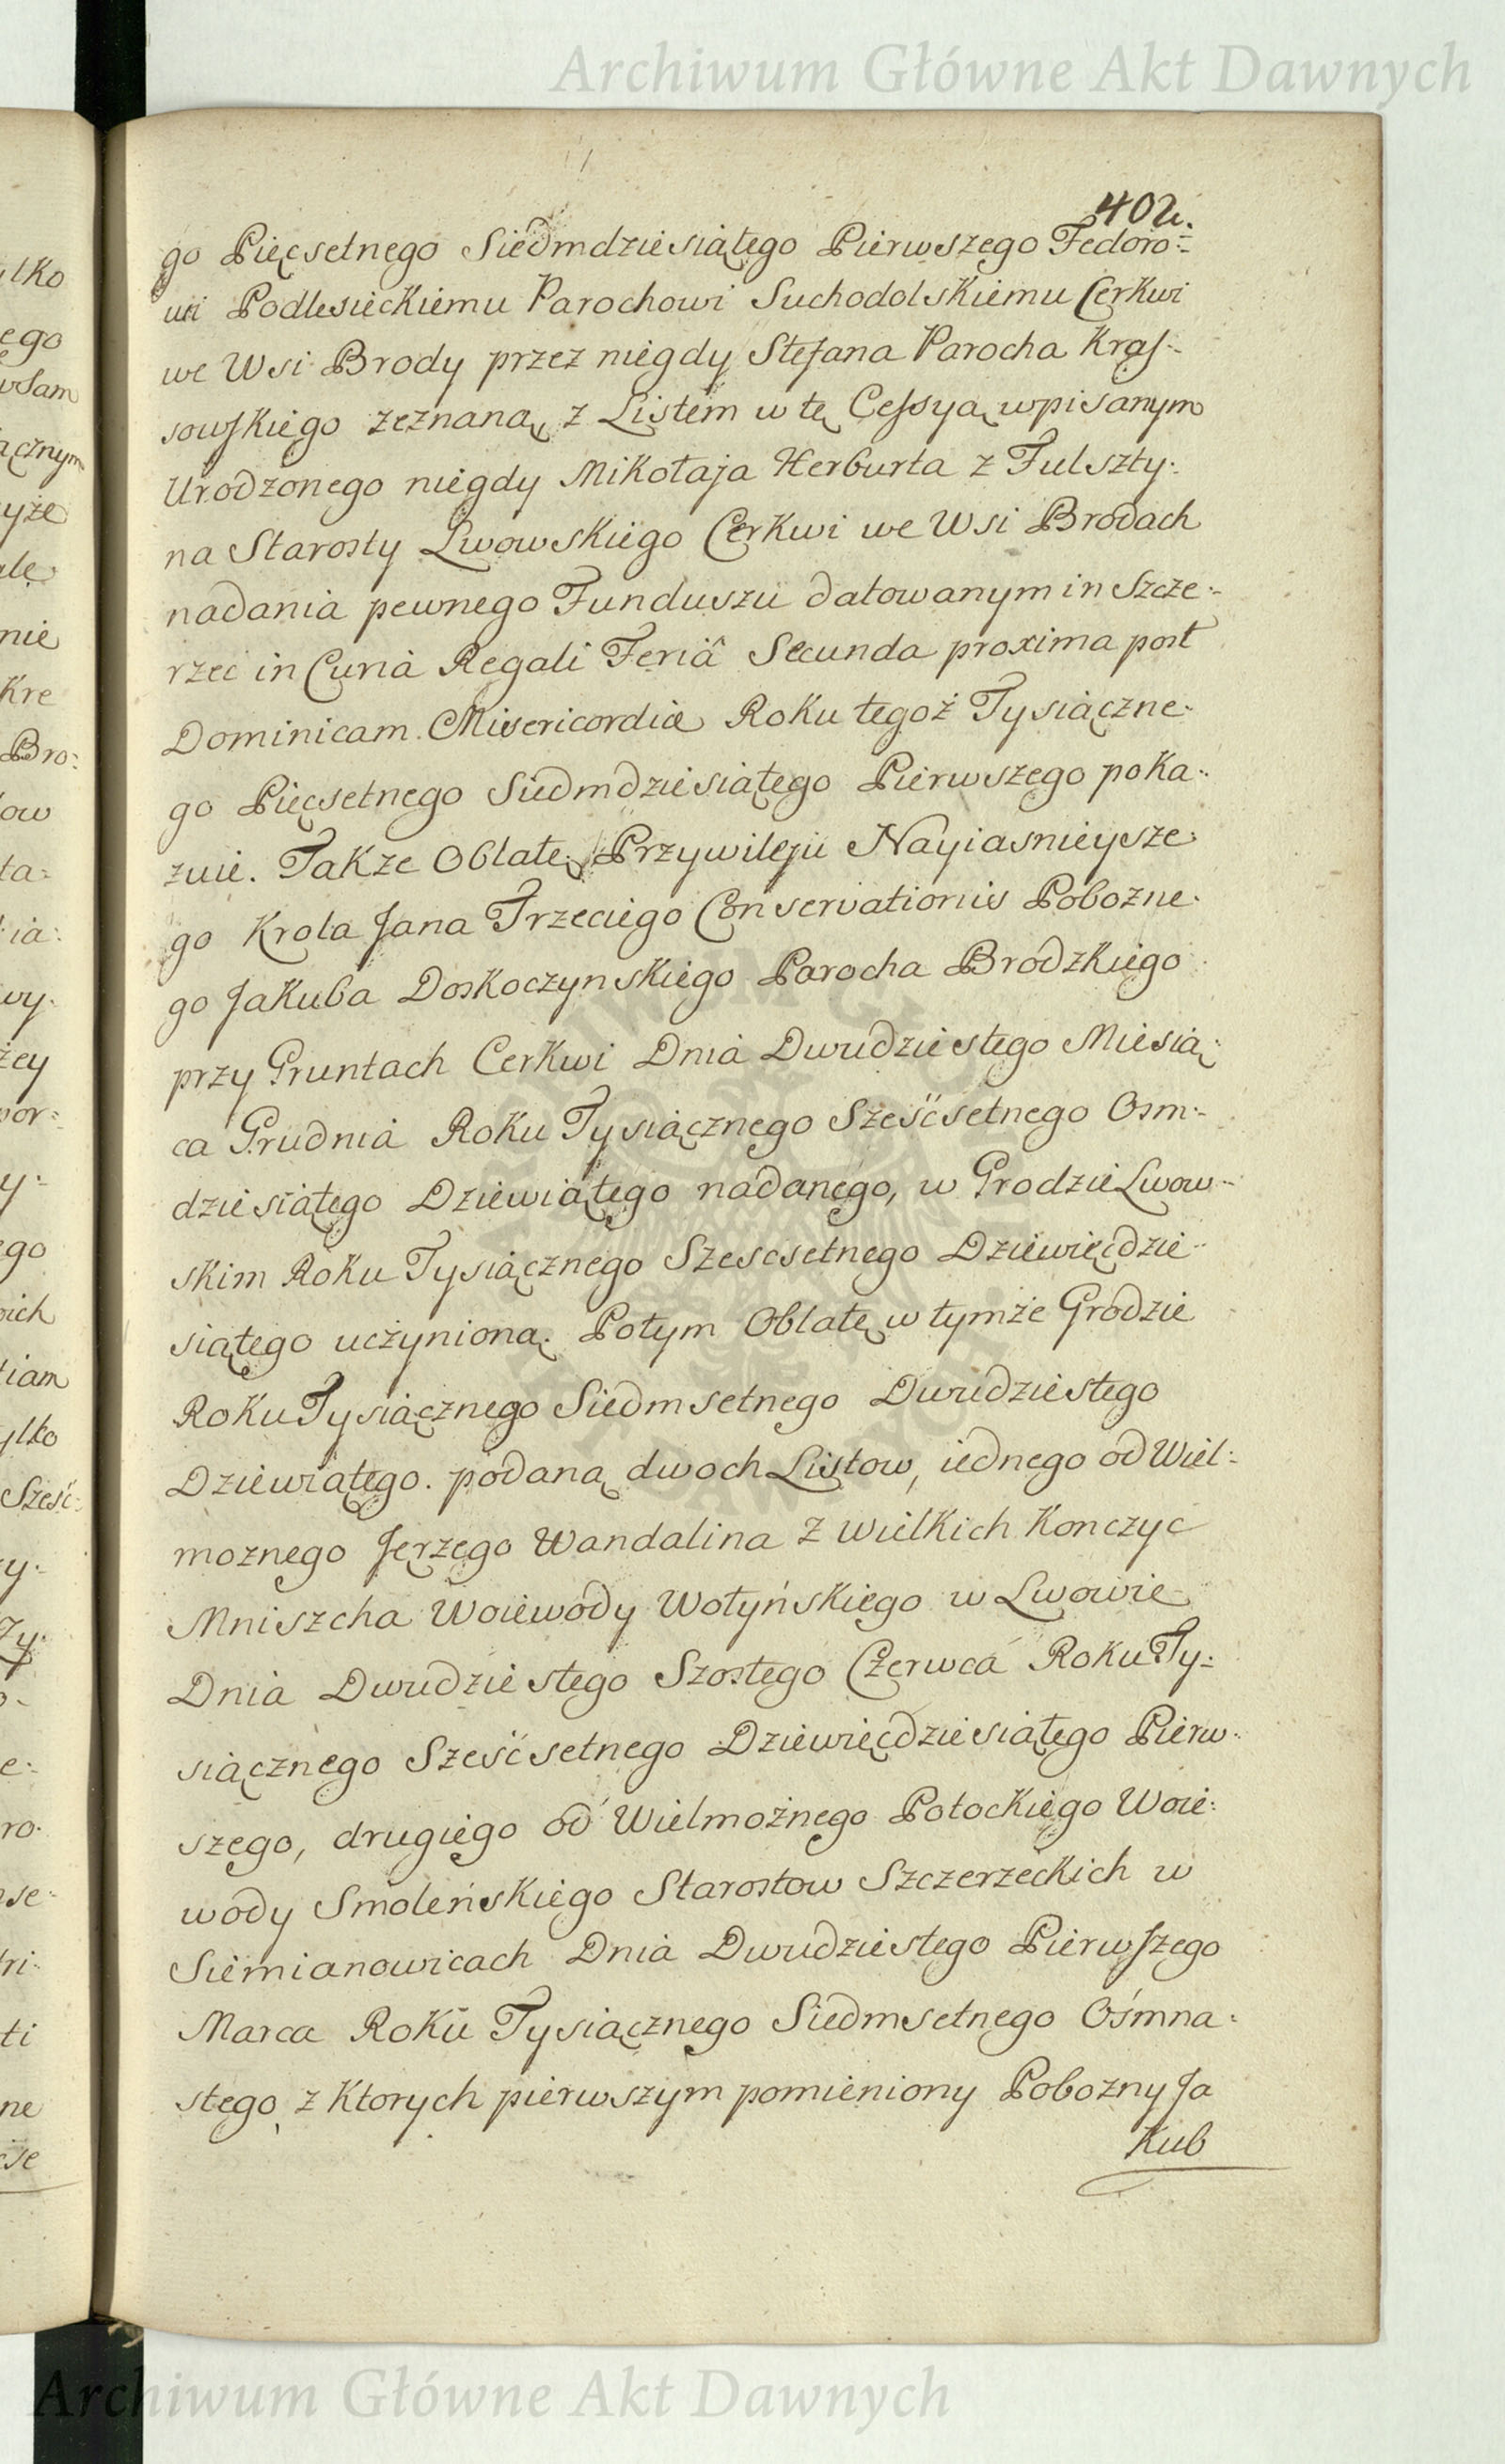 Archiwum Główne Akt Dawnych
402.
go Pięcsetnego Siedmdziesiątego Pierwszego Fedoro:
wi Podlesieckiemu Parochowi Suchodolskiemu Cerkwi
we Wsi Brody przez niegdy Stefana Parocha Kras:
sowskiego zeznaną, z Listem w tę Cessyą wpisanym
Urodzonego niegdy Mikołaja Herburta z Fulszty:
na Starosty Lwowskiego Cerkwi we Wsi Brodach
nadania pewnego Funduszu datowanym in Szcze:
rzec in Curia Regali Feriâ Secunda proxima post
Dominicam Misericordiæ Roku tegoż Tysiączne:
go Pięcsetnego Siedmdziesiątego Pierwszego poka:
zuie. Takze Oblatę Przywileju Nayiasnieysze:
go Krola Jana Trzeciego Conservationis Pobozne:
go Jakuba Doskoczynskiego Parocha Brodzkiego
przy Gruntach Cerkwi Dnia Dwudziestego Miesią:
ca Grudnia Roku Tysiącznego Sześćsetnego Osm:
dziesiątego Dziewiątego nadanego, w Grodzie Lwow:
skim Roku Tysiącznego Szescsetnego Dziewięcdzie:
siątego uczynioną. Potym Oblatę w tymże Grodzie
Roku Tysiącznego Siedmsetnego Dwudziestego
Dziewiątego. podaną dwoch Listow, iednego od Wiel:
moznego Jerzego Wandalina z Wielkich Konczyc
Mniszcha Woiewody Wołyńskiego w Lwowie
Dnia Dwudziestego Szostego Czerwca Roku Ty:
siącznego Sześćsetnego Dziewięcdziesiątego Pierw:
szego, drugiego od Wielmożnego Potockiego Woie:
wody Smoleńskiego Starostow Szczerzeckich w
Siemianowicach Dnia Dwudziestego Pierwszego
Marca Roku Tysiącznego Siedmsetnego Ośmna:
stego, z Ktorych pierwszym pomieniony Pobozny Ja
Kub
Archiwum Główne Akt Dawnych